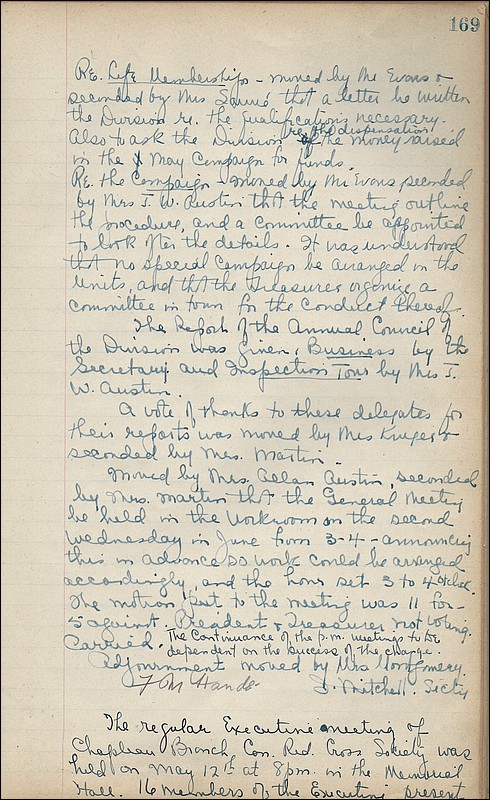 169
RE. Life Memberships - moved by Mr Evans &
seconded by Mrs that a letter be written
the Division re. the qualifications necessary.
Also to ask the Division re the dispensation of the money raised
in the May Campaign for funds.
RE. the Campaign - moved by Mr Evans seconded
by Mrs J. W. Austin that the meeting outline
the procedure, and a committee be appointed
to look after the details. It was understood
that no special campaign be arranged in the
units, and that the Treasurer organize a
committee in town for the conduct thereof.
The Report of the Annual Council of
the Division was given, Business by the
Secretary and Inspection Tour by Mrs J.
W. Austin.
A vote of thanks to these delegates for
their reports was moved by Mrs Kruger &
seconded by Mrs. Martin.
Moved by Mrs. Allan Austin, seconded
by Mrs. Martin that the General Meeting
be held in the workroom on the second
Wednesday in June from 3-4 - announcing
this in advance so work could be arranged
accordingly, and the hour set 3 to 4 o'clock.
The motion put to the meeting was 11 for -
5 against. President & Treasurer not voting.
Carried. The continuance of the p.m. meetings to be
dependent on the success of the change.
Adjournment moved by Mrs Montgomery.
J. Mitchell. Sec'ty
The regular Executive meeting of
Chapleau Branch Can. Red. Cross Society was
held on May 12th at 8 pm. in the Memorial
Hall. 16 members of the Executive present